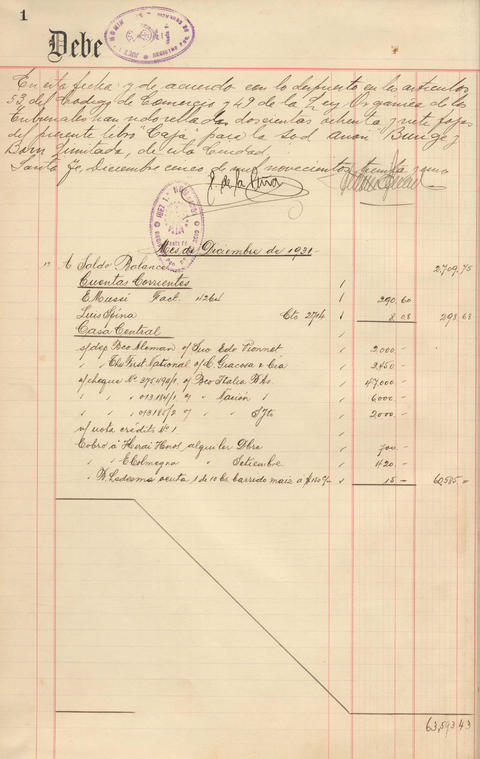 1
Debe
En esta fecha y de acuerdo con lo dispuesto en los artículos
53, del Código de Comercio y 49 de la Ley Orgánica de los
Tribunales han sido sellados doscientas ochenta y siete fojas
del presente libro "Caja" para la Sed. Anón. Bunge y
Born Limitada, de esta Ciudad.
Santa Fe, Diciembre cinco de mil novecientos treinta y uno
Mes de Diciembre de 1931
1º A Saldo Balance 2709.75
Cuentas Corrientes 1
E Mussi Fact. 4264 1 290.60
Luis Spina Cto 2704 1 8.03 298.63
Casa Central 1
s/dep Bco Aleman o/ Suc Edo Vionnet 1 2,000.-
" " The First National o/ C. Giacosa & Cia 1 3,450.-
s/cheque Nº o/ Bco Italia Bs. 1 47,000.-
" " " 013184/1 o/ " Nación 1 6000.-
" " " 013185/2 o/ " " 1 2,000.-
s/nota crédito Nº 1
Cobro á Hnos alquiler Obre 1 700.-
" " E Colmegna " Setiembre 1 420.-
" Ledesma venta 1 de 10 Bs barrido maiz a $ 1 15.- 60,585.-
63,593.43